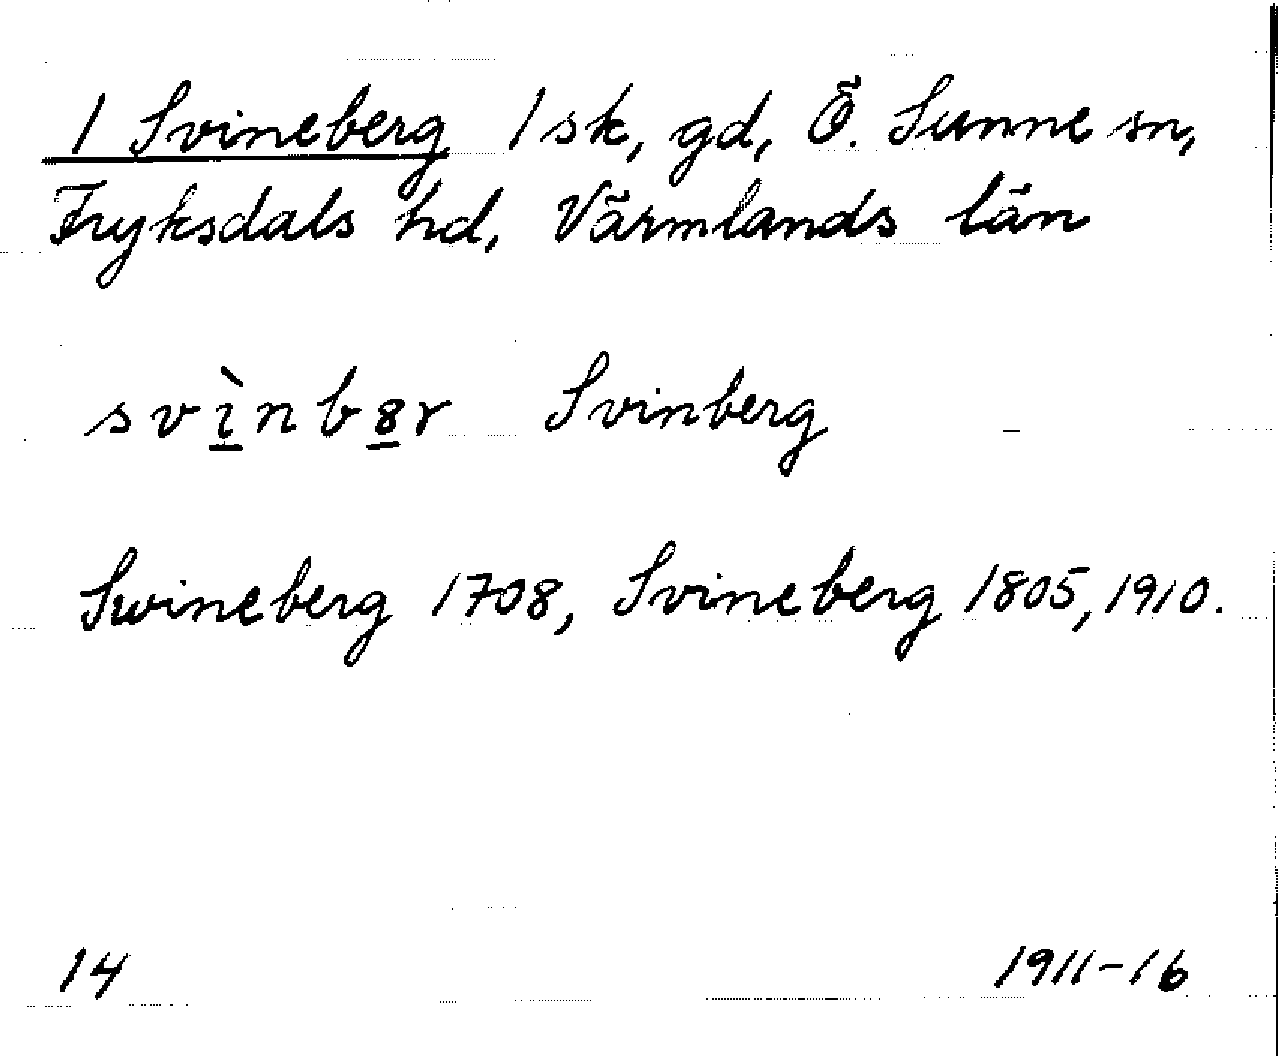 1 Svineberg 1 sk, gd, Ö. Sunne sn,
Fryksdals hd, Värmlands län
svìnb8r Svinberg -
Swineberg 1708, Svineberg 1805, 1910.
14 1911-16